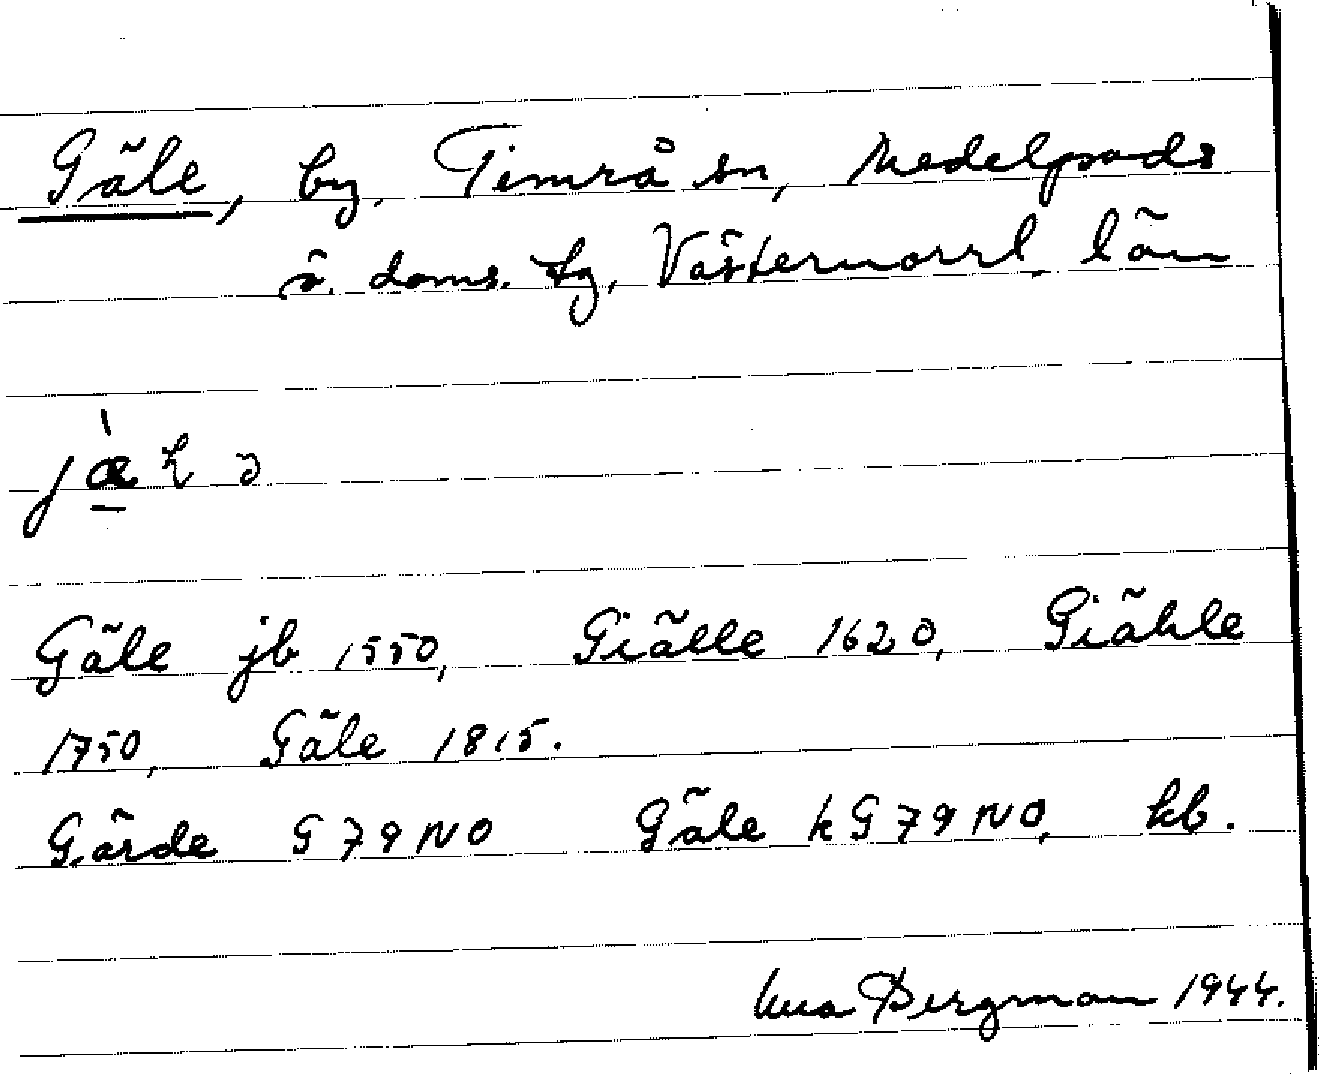 Gäle, by. Timrå sn, Medelpads
ö. doms. tg, Västernorrl. län
jæ̀ɽə
Gäle jb 1550, Giälle 1620, Giähle
1750, Gäle 1815.
Gärde G79NO Gäle kG79NO, kb.
Bergman 1944.